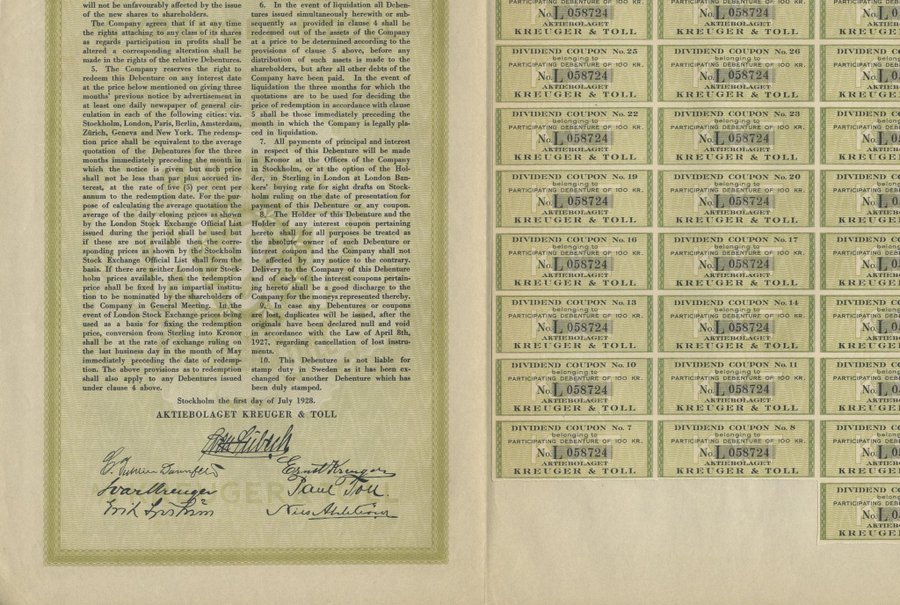 will not be unfavourably affected by the issue
of the new shares to shareholders.
The Company agrees that if at any time
the rights attaching to any class of its shares
as regards participation in profits shall be
altered a corresponding alteration shall be
made in the rights of the relative Debentures.
5. The Company reserves the right to
redeem this Debenture on any interest date
at the price below mentioned on giving three
months' previous notice by advertisement in
at least one daily newspaper of general cir-
culation in each of the following cities: viz.
Stockholm, London, Paris, Berlin, Amsterdam,
Zürich, Geneva and New York. The redemp-
tion price shall be equivalent to the average
quotation of the Debentures for the three
months immediately preceding the month in
which the notice is given but such price
shall not be less than par plus accrued in-
terest, at the rate of five (5) per cent per
annum to the redemption date. For the pur-
pose of calculating the average quotation the
average of the daily closing prices as shown
by the London Stock Exchange Official List
issued during the period shall be used but
if these are not available then the corre-
sponding prices as shown by the Stockholm
Stock Exchange Official List shall form the
basis. If there are neither London nor Stock-
holm prices available, then the redemption
price shall be fixed by an impartial institu-
tion to be nominated by the shareholders of
the Company in General Meeting. In the
event of London Stock Exchange prices being
used as a basis for fixing the redemption
price, conversion from Sterling into Kronor
shall be at the rate of exchange ruling on
the last business day in the month of May
immediately preceding the date of redemp-
tion. The above provisions as to redemption
shall also apply to any Debentures issued
under clause 4 above.
6. In the event of liquidation all Deben-
tures issued simultaneously herewith or sub-
sequently as provided in clause 4 shall be
redeemed out of the assets of the Company
at a price to be determined according to the
provisions of clause 5 above, before any
distribution of such assets is made to the
shareholders, but after all other debts of the
Company have been paid. In the event of
liquidation the three months for which the
quotations are to be used for deciding the
price of redemption in accordance with clause
5 shall be those immediately preceding the
month in which the Company is legally pla-
ced in liquidation.
7. All payments of principal and interest
in respect of this Debenture will be made
in Kronor at the Offices of the Company
in Stockholm, or at the option of the Hol-
der, in Sterling in London at London Ban-
kers' buying rate for sight drafts on Stock-
holm ruling on the date of presentation for
payment of this Debenture or any coupon.
8. The Holder of this Debenture and the
Holder of any interest coupon pertaining
hereto shall for all purposes be treated as
the absolute owner of such Debenture or
interest coupon and the Company shall not
be affected by any notice to the contrary.
Delivery to the Company of this Debenture
and of each of the interest coupons pertain-
ing hereto shall be a good discharge to the
Company for the moneys represented thereby.
9. In case any Debentures or coupons
are lost, duplicates will be issued, after the
originals have been declared null and void
in accordance with the Law of April 8th,
1927, regarding cancellation of lost instru-
ments.
10. This Debenture is not liable for
stamp duty in Sweden as it has been ex-
changed for another Debenture which has
been duly stamped.
Stockholm the first day of July 1928.
AKTIEBOLAGET KREUGER & TOLL
Ernst Kreuger
Ivar Kreuger
Paul Toll
Nils Ahlström
PARTICIPATING DEBENTURE OF 100 KR.
No. L 058724
AKTIEBOLAGET
KREUGER & TOLL
PARTICIPATING DEBENTURE OF 100 KR.
No. L 058724
AKTIEBOLAGET
KREUGER & TOLL
No. L 0
AKTIEB
KREUGER
DIVIDEND COUPON No. 25
belonging to
PARTICIPATING DEBENTURE OF 100 KR.
No. L 058724
AKTIEBOLAGET
KREUGER & TOLL
DIVIDEND COUPON No. 26
belonging to
PARTICIPATING DEBENTURE OF 100 KR.
No. L 058724
AKTIEBOLAGET
KREUGER & TOLL
DIVIDEND CO
No. L 0
KREUGER
DIVIDEND COUPON No. 22
belonging to
PARTICIPATING DEBENTURE OF 100 KR.
No. L 058724
AKTIEBOLAGET
KREUGER & TOLL
DIVIDEND COUPON No. 23
belonging to
PARTICIPATING DEBENTURE OF 100 KR.
No. L 058724
AKTIEBOLAGET
KREUGER & TOLL
DIVIDEND CO
No. L 0
KREUGER
DIVIDEND COUPON No. 19
belonging to
PARTICIPATING DEBENTURE OF 100 KR.
No. L 058724
AKTIEBOLAGET
KREUGER & TOLL
DIVIDEND COUPON No. 20
belonging to
PARTICIPATING DEBENTURE OF 100 KR.
No. L 058724
AKTIEBOLAGET
KREUGER & TOLL
DIVIDEND CO
No. L 0
KREUGER
DIVIDEND COUPON No. 16
belonging to
PARTICIPATING DEBENTURE OF 100 KR.
No. L 058724
AKTIEBOLAGET
KREUGER & TOLL
DIVIDEND COUPON No. 17
belonging to
PARTICIPATING DEBENTURE OF 100 KR.
No. L 058724
AKTIEBOLAGET
KREUGER & TOLL
DIVIDEND CO
No. L 0
KREUGER
DIVIDEND COUPON No. 13
belonging to
PARTICIPATING DEBENTURE OF 100 KR.
No. L 058724
AKTIEBOLAGET
KREUGER & TOLL
DIVIDEND COUPON No. 14
belonging to
PARTICIPATING DEBENTURE OF 100 KR.
No. L 058724
AKTIEBOLAGET
KREUGER & TOLL
DIVIDEND CO
No. L 0
KREUGER
DIVIDEND COUPON No. 10
belonging to
PARTICIPATING DEBENTURE OF 100 KR.
No. L 058724
AKTIEBOLAGET
KREUGER & TOLL
DIVIDEND COUPON No. 11
belonging to
PARTICIPATING DEBENTURE OF 100 KR.
No. L 058724
AKTIEBOLAGET
KREUGER & TOLL
DIVIDEND CO
No. L 0
KREUGER
DIVIDEND COUPON No. 7
belonging to
PARTICIPATING DEBENTURE OF 100 KR.
No. L 058724
AKTIEBOLAGET
KREUGER & TOLL
DIVIDEND COUPON No. 8
belonging to
PARTICIPATING DEBENTURE OF 100 KR.
No. L 058724
AKTIEBOLAGET
KREUGER & TOLL
DIVIDEND CO
No. L 0
KREUGER
DIVIDEND CO
No. L 0
KREUGER